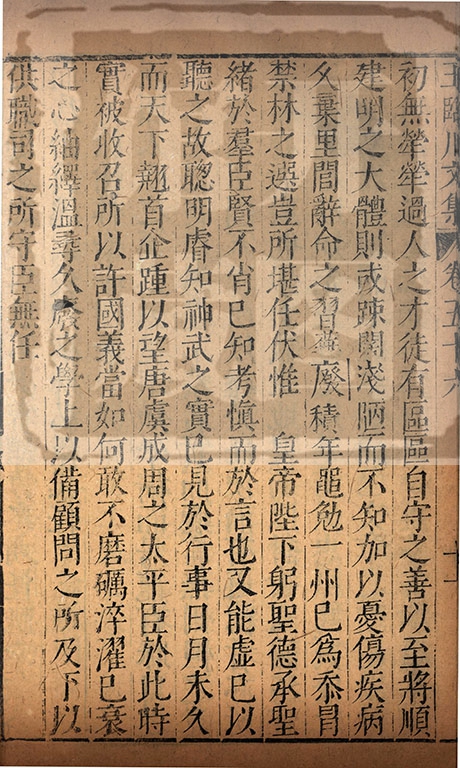 王臨川文集 卷五十六 十一
初無犖犖過人之才徒有區區自守之善以至將順
建明之大體則或疎闊淺陋而不知加以憂傷疾病
久棄里閭辭命之習蕪廢積年黽勉一州已為忝冒
禁林之選豈所堪任伏惟 皇帝陛下躬聖德承聖
緒於羣臣賢不肖已知考慎而於言也又能虛已以
聽之故聰明睿知神武之實已見於行事日月未久
而天下翹首企踵以望唐虞成周之太平臣於此時
實被收召所以許國義當如何敢不磨礪淬濯已衰
之心紬繹溫尋久廢之學上以備顧問之所及下以
供職司之所守臣無任